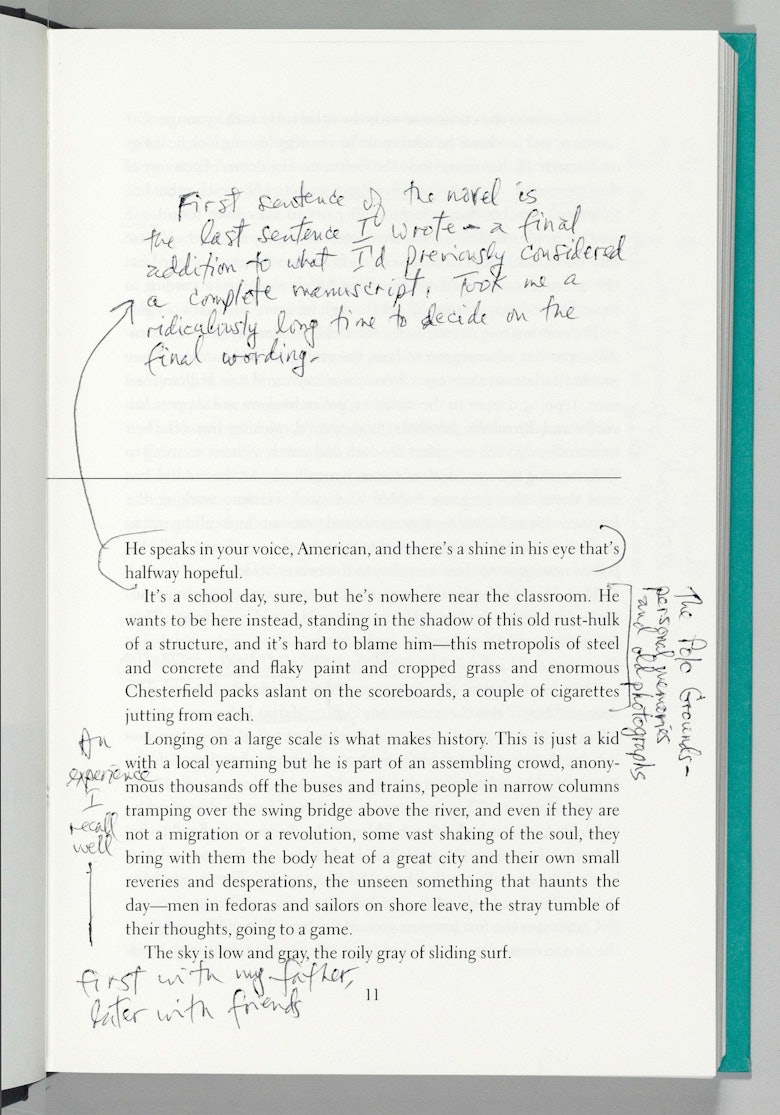 First sentence of the novel is
the last sentence I wrote – a final
addition to what I'd previously considered
a complete manuscript. Took me a
ridiculously long time to decide on the
final wording.
He speaks in your voice, American, and there's a shine in his eye that's
halfway hopeful.
It's a school day, sure, but he's nowhere near the classroom. He
wants to be here instead, standing in the shadow of this old rust-hulk
of a structure, and it's hard to blame him—this metropolis of steel
and concrete and flaky paint and cropped grass and enormous
Chesterfield packs aslant on the scoreboards, a couple of cigarettes
jutting from each.
The Polo Grounds –
personal memories
and old photographs
Longing on a large scale is what makes history. This is just a kid
with a local yearning but he is part of an assembling crowd, anony-
mous thousands off the buses and trains, people in narrow columns
tramping over the swing bridge above the river, and even if they are
not a migration or a revolution, some vast shaking of the soul, they
bring with them the body heat of a great city and their own small
reveries and desperations, the unseen something that haunts the
day—men in fedoras and sailors on shore leave, the stray tumble of
their thoughts, going to a game.
An
experience
I
recall
well
The sky is low and gray, the roily gray of sliding surf.
first with my father,
later with friends
11